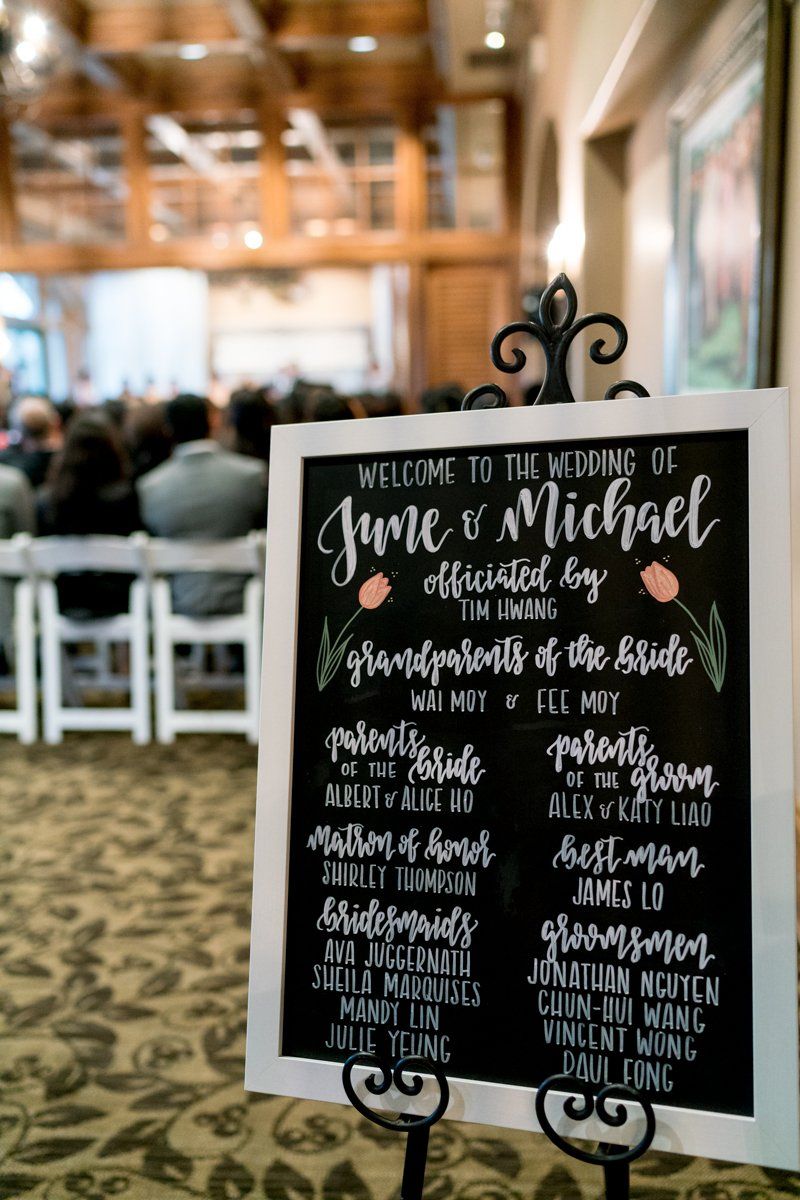 WELCOME TO THE WEDDING OF
June & Michael
officiated by
TIM HWANG
grandparents of the bride
WAI MOY & FEE MOY
parents
OF THE bride
ALBERT & ALICE HO
parents
OF THE groom
ALEX & KATY LIAO
matron of honor
SHIRLEY THOMPSON
best man
JAMES LO
bridesmaids
AVA JUGGERNATH
SHEILA MARQUISES
MANDY LIN
JULIE YEUNG
groomsmen
JONATHAN NGUYEN
CHUN-HUI WANG
VINCENT WONG
PAUL FONG